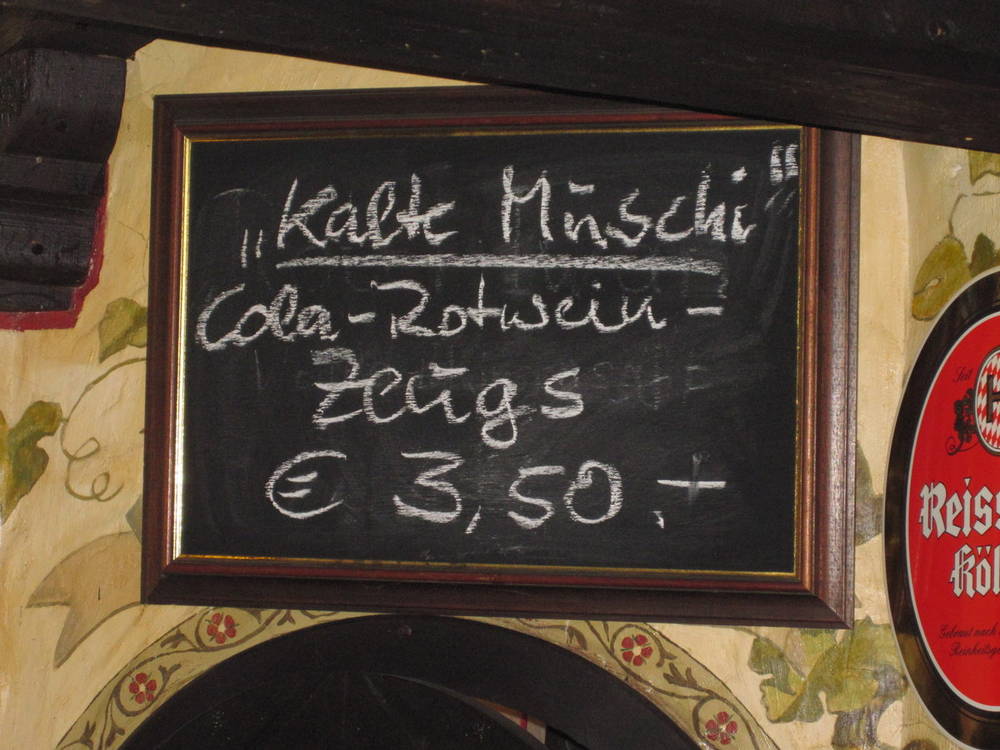 „Kalte Muschi"
Cola-Rotwein-
Zeugs
€ 3,50,-
Seit
Reiss
Köl
Gebraut nach
Reinheitsge